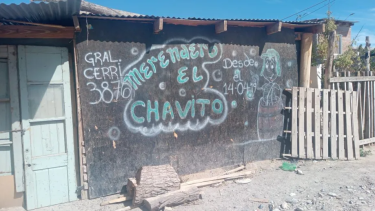 GRAL.
CERRI
3876
merendero
EL
CHAVITO
Desde
14-04-19